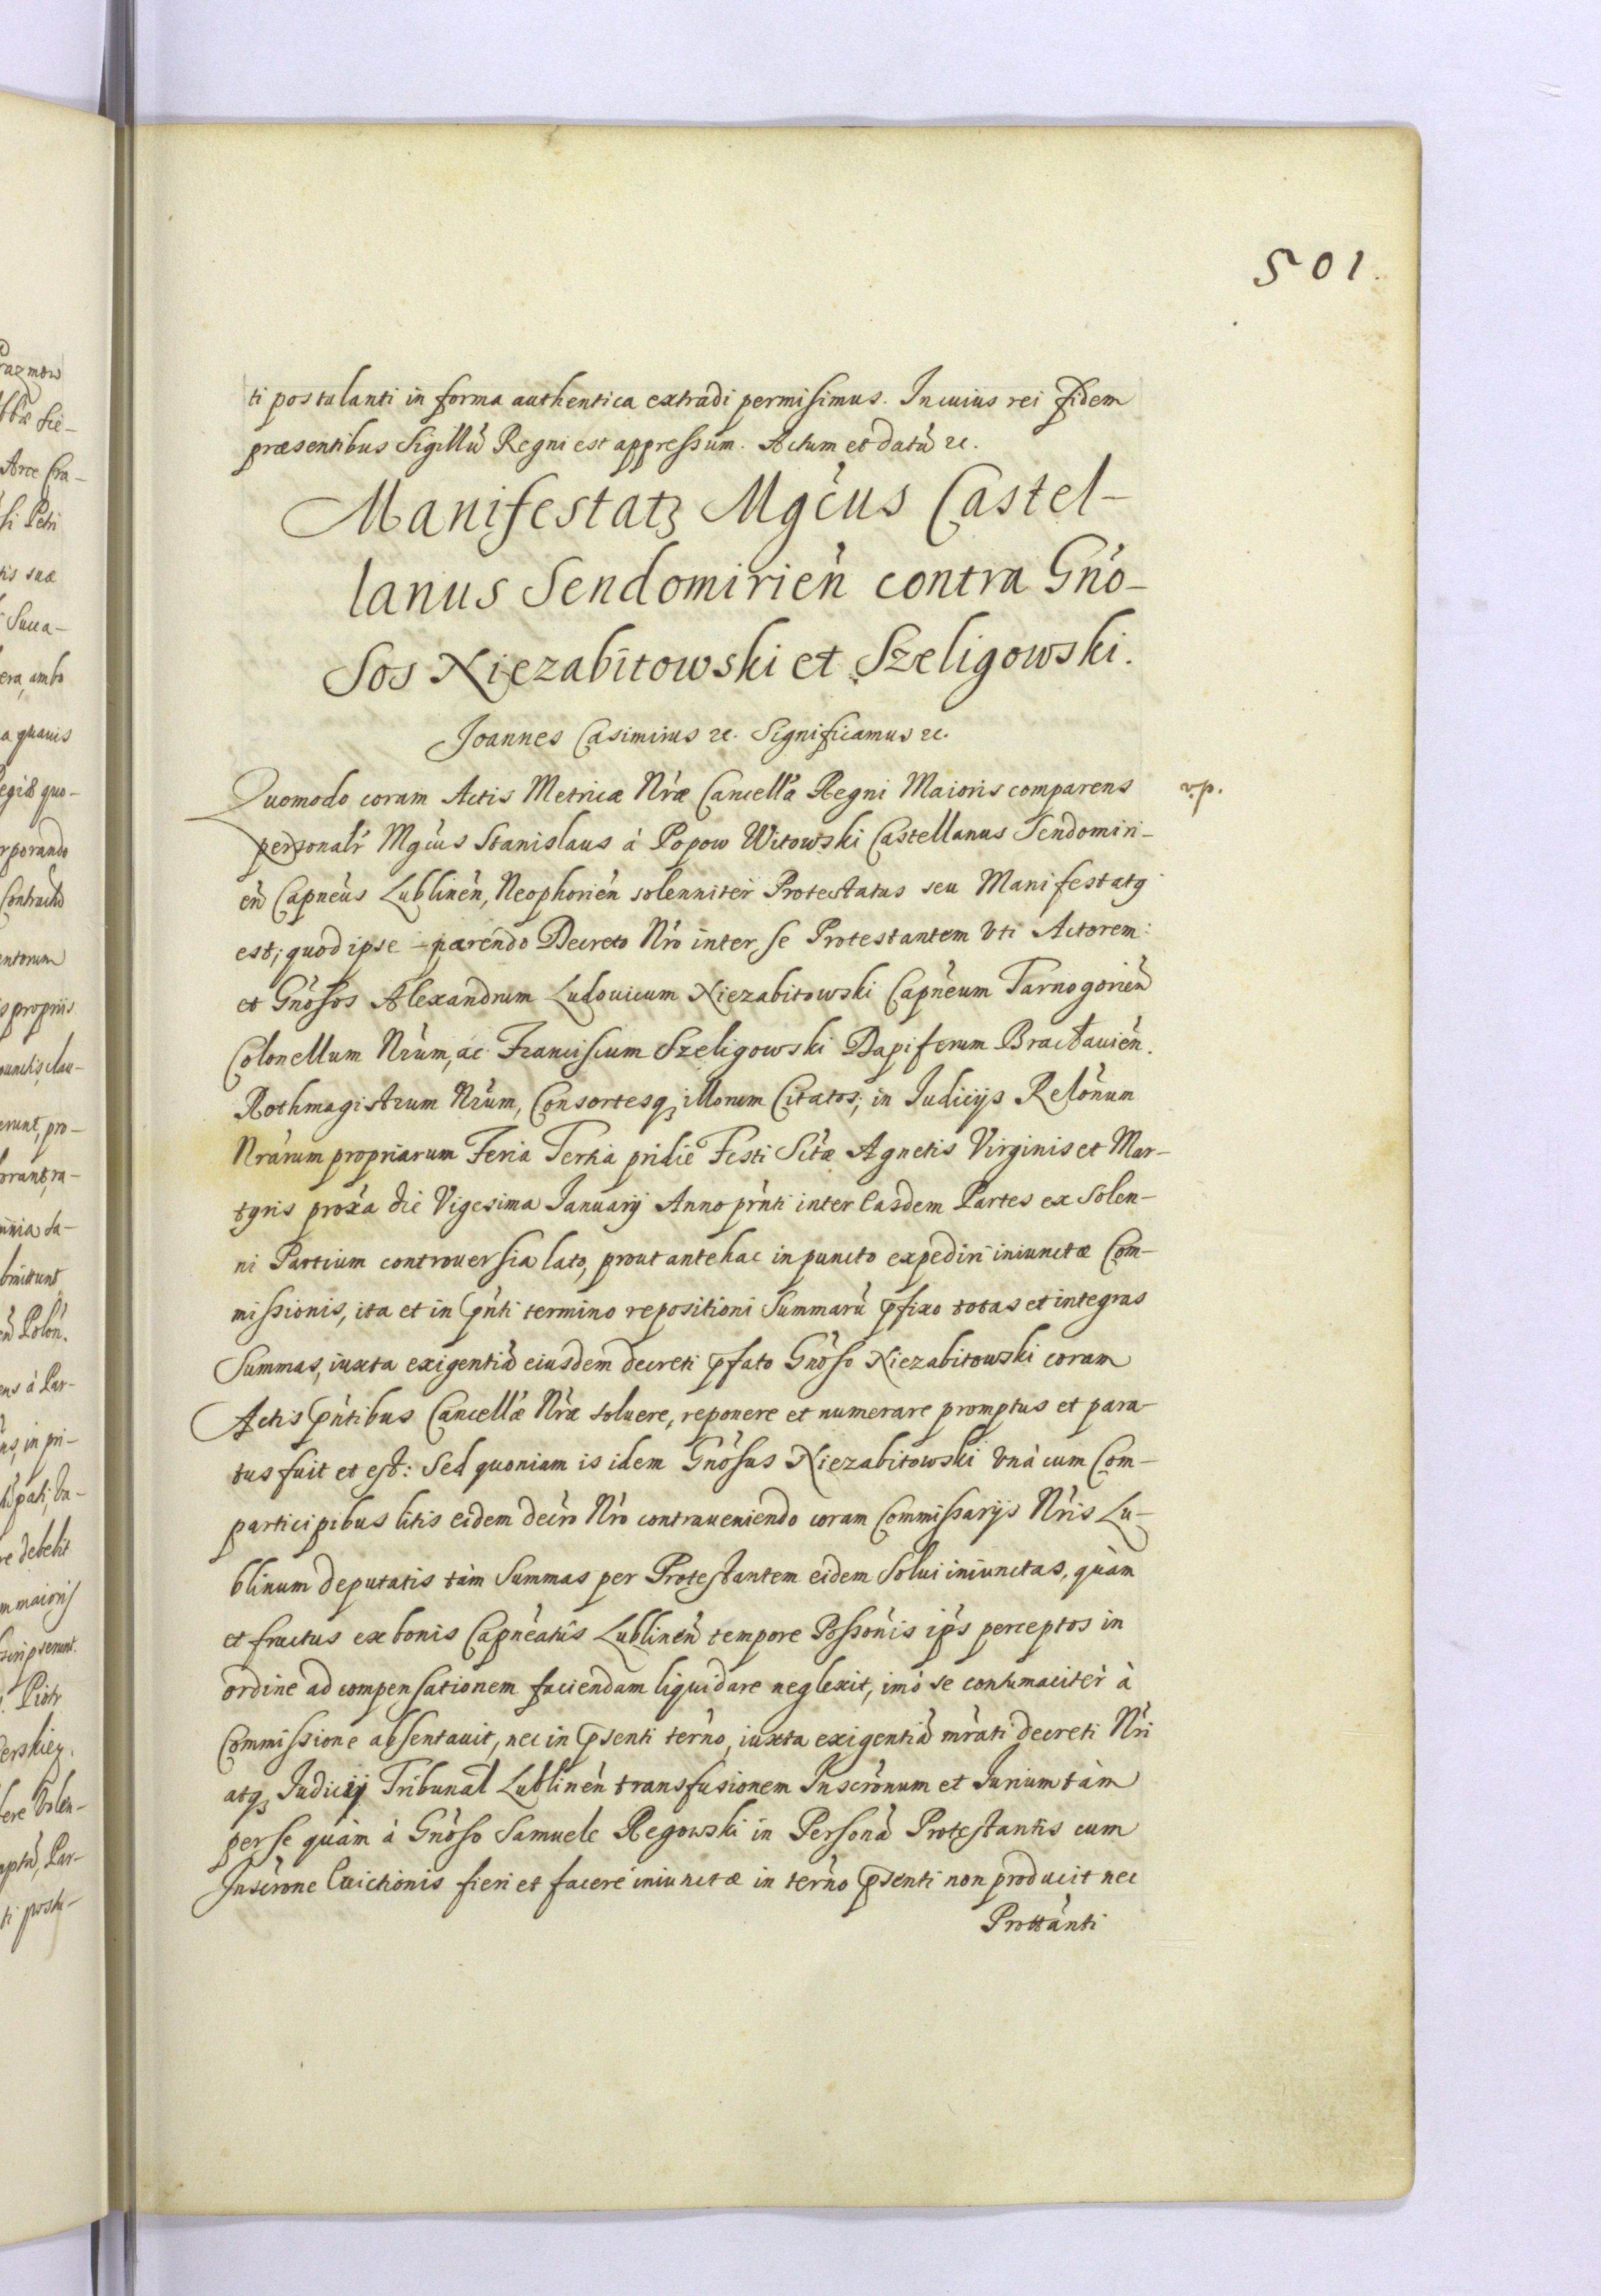 501.
ti postulanti in forma authentica extradi permissimus. In cuius rei fidem
præsentibus Sigillũ Regni est appressum. Actum et datũ ⁊c.
Manifestatꝫ Mgc̃us Castel-
lanus Sendomirien̉ contra Gn̉o-
sos Niezabitowski et Szeligowski.
Joannes Casimirus ⁊c. Significamus ⁊c.
Quomodo coram Actis Metricæ Nr̃æ Cancell̃æ Regni Maioris comparens
personalr̃ Mgc̃us Stanislaus à Popow Witowski Castellanus Sendomiri-
en̉ Capn̉eus Lublinen̉, Neophorien̉ solenniter Protestatus seu Manifestatq
est; quod ipse parendo Decreto Nr̃o inter se Protestantem vti Actorem:
et Gn̉osos Alexandrum Ludouicum Niezabitowski Capn̉eum Tarnogorien̉
Colonellum Nr̃um, ac Franciscum Szeligowski Dapiferum Bractauien̉.
Rothmagistrum Nr̃um, Consortesqꝫ illorum Citatos; in Iudicijs Relõnum
Nr̃arum propriarum Feria Tertia pridie Festi Sc̃tæ Agnetis Virginis et Mar-
tyris prox̃a die Vigesima Ianuarij Anno pr̃nti inter Easdem Partes ex solen-
ni Partium controuersia lato, prout antehac in puncto expediri iniunctæ Com-
missionis, ita et in p̃nti termino repositioni Summarũ p̃fixo totas et integras
Summas, iuxta exigentiã eiusdem decreti p̃fato Gn̉oso Niezabitowski coram
Actis p̃ntibus Cancell̃æ Nr̃æ soluere, reponere et numerare promptus et para-
tus fuit et est: Sed quoniam is idem Gn̉osus Niezabitowski vnà cum Com-
participibus litis eidem decr̃o Nr̃o contraueniendo coram Commissarijs Nr̃is Lu-
blinum deputatis tàm Summas per Protestantem eidem solui iniunctas, quàm
et fructus ex bonis Capn̉eatûs Lublinen̉ tempore Possõnis ip̃s perceptos in
ordine ad compensationem faciendam liquidare neglexit, imò se contumaciter à
Commissione absentauit, nec in p̃senti ter̃no, iuxta exigentiã mr̃ati decreti Nr̃i
atqꝫ Iudicij Tribunal̃ Lublinen̉ transfusionem Inscrõnum et Iurium tàm
per se quàm à Gn̉oso Samuele Regowski in Personã Protestantis cum
Inscrõne Euictionis fieri et facere iniunctæ in ter̃no p̃senti non producit nec
Prottãnti